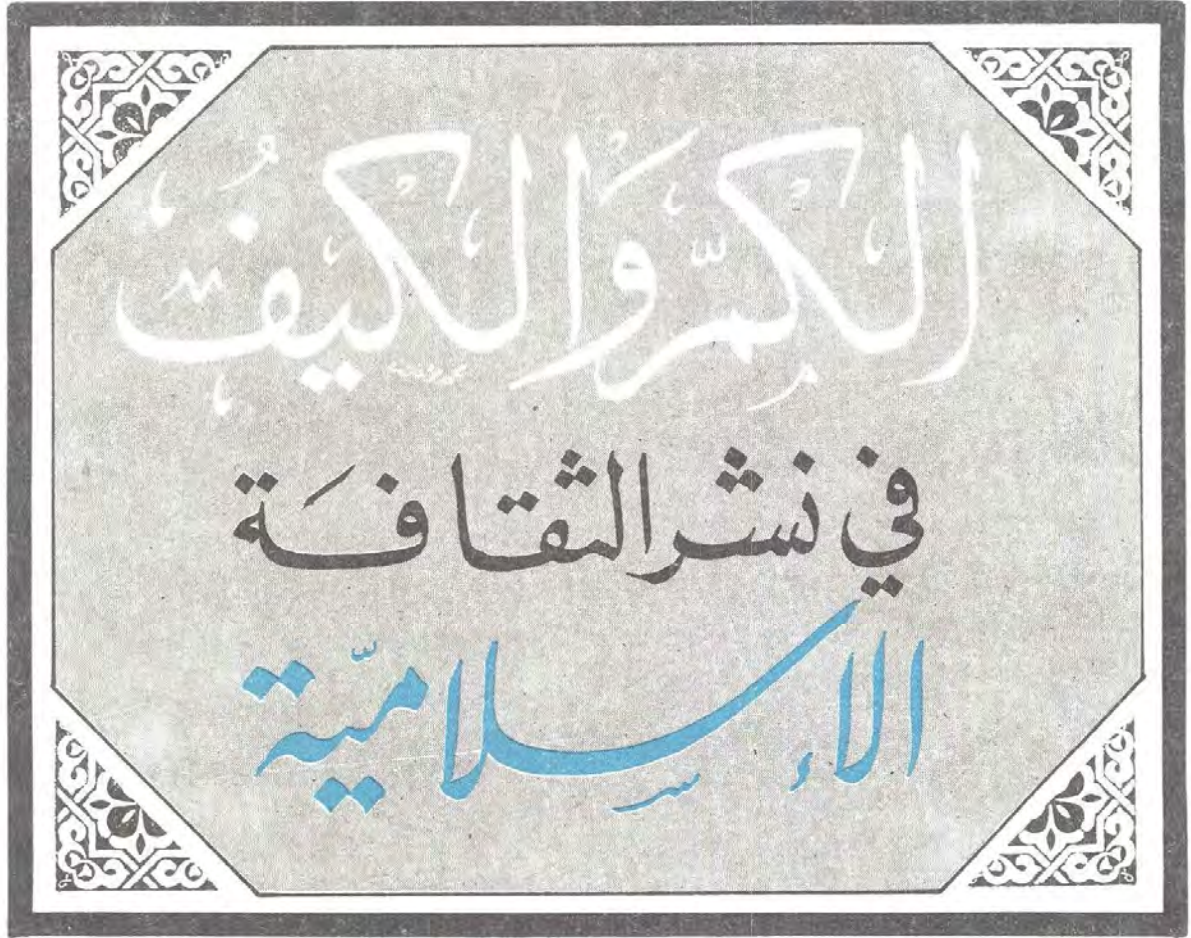 الكمّ وَالكيف
في نشر الثقافَة
الإسلاميّة